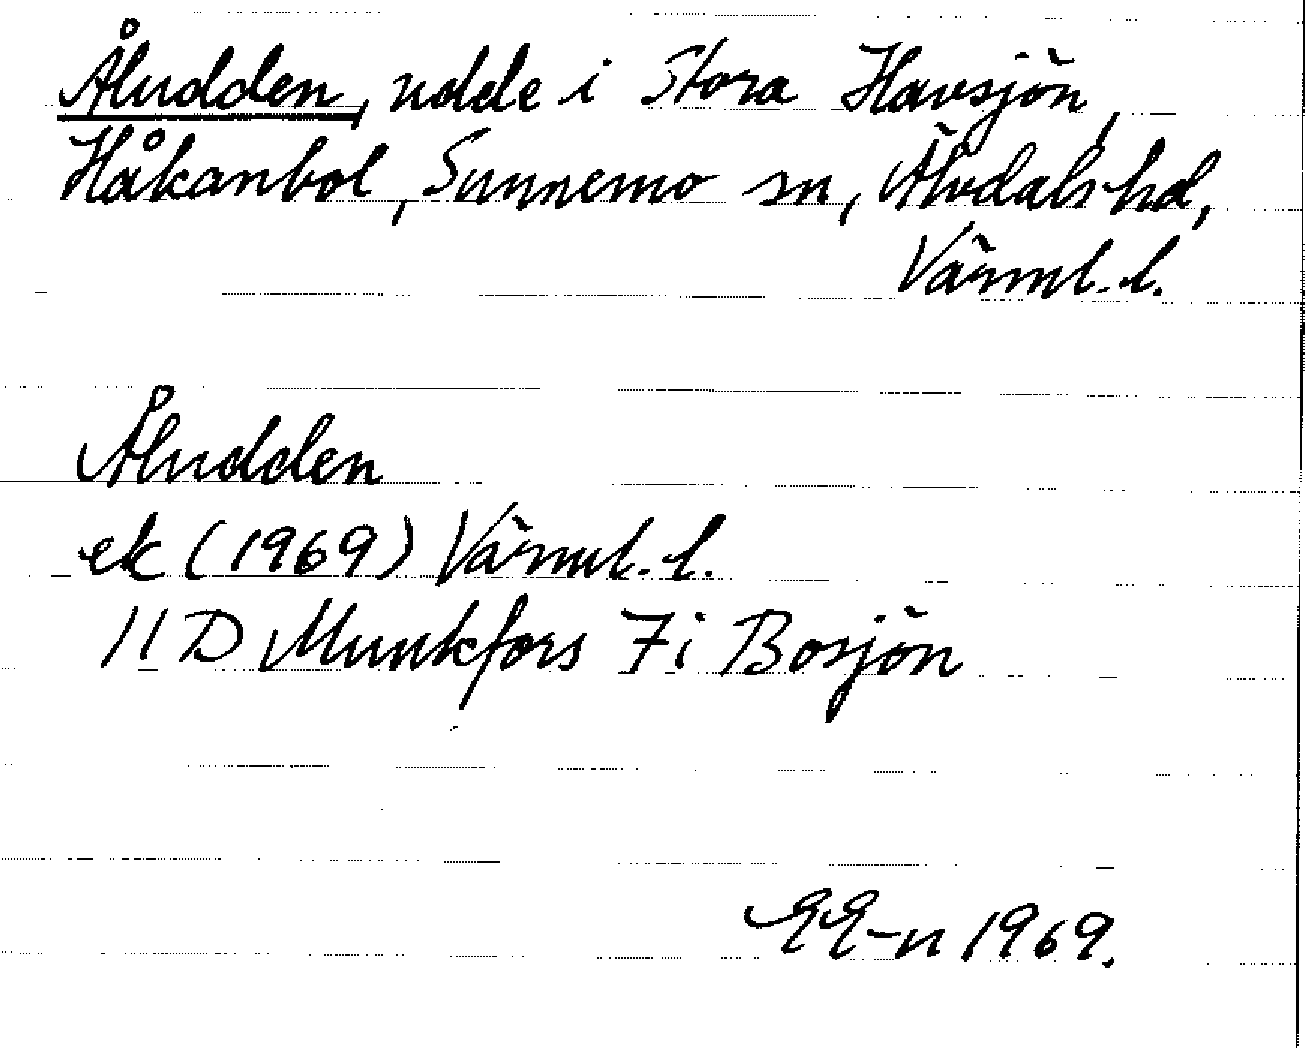 Åludden, udde i Stora Havsjön,
Håkanbol, Sunnemo sn, Älvdals hd,
Värml. l.
Åludden
ek (1969) Värml. l.
11 D Munkfors 7 i Bosjön
EE-n 1969.